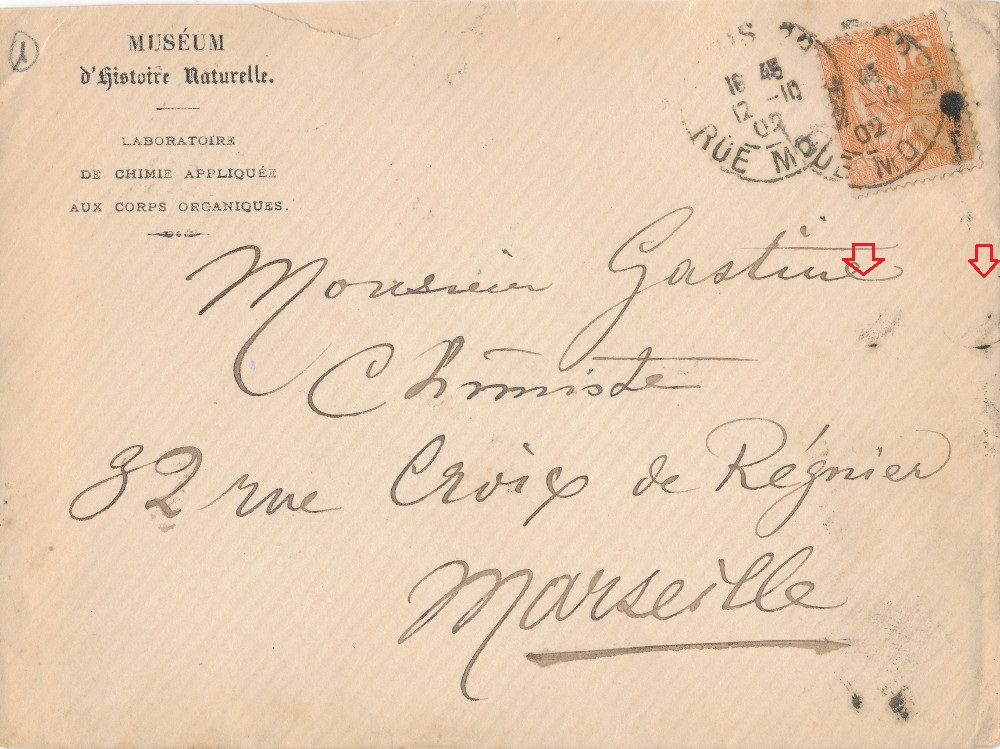 1
MUSÉUM
d'Histoire Naturelle.
LABORATOIRE
DE CHIMIE APPLIQUÉE
AUX CORPS ORGANIQUES.
16 45
12 -10
02
RUE MO
45
-10
02
RUE MO
15
Monsieur Gastine
Chimiste
32 rue Croix de Régnier
Marseille